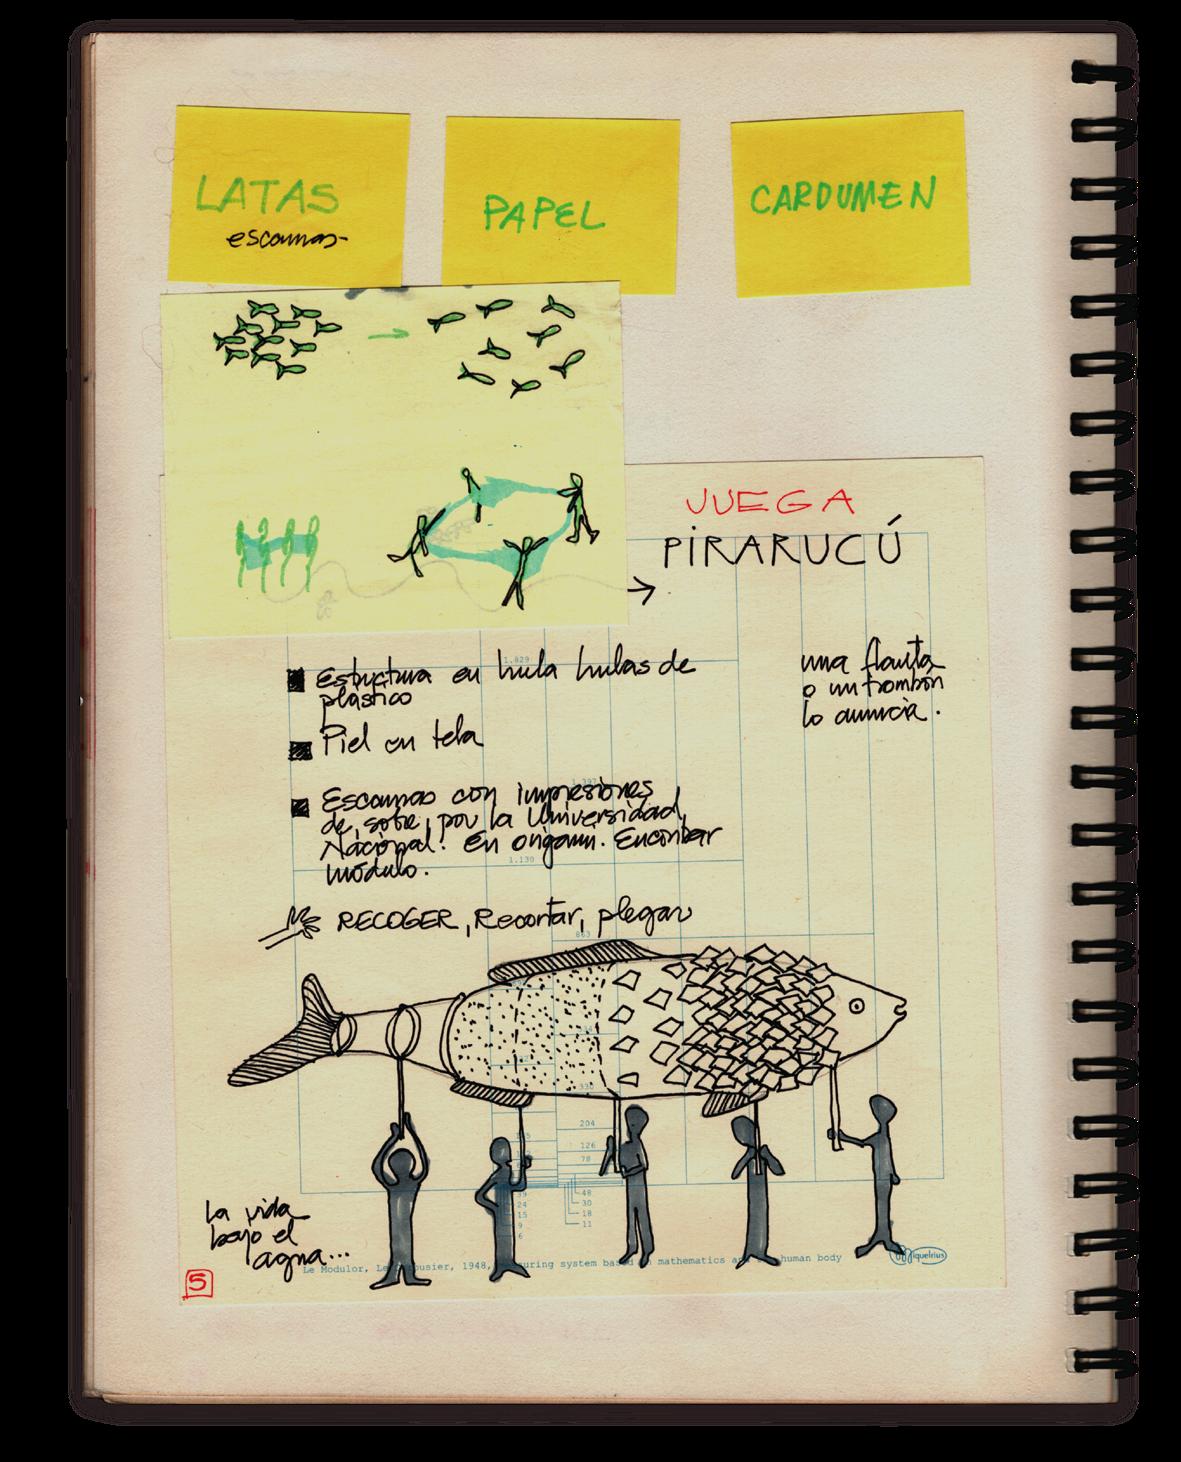 LATAS
escamas
PAPEL
CARDUMEN
JUEGA
PIRARUCÚ
Estructura en hula hulas de
plástico
una flauta
o un trombón
lo anuncia.
Piel en tela
Escamas con impresiones
de, sobre, por la Universidad
Nacional. En origami. Encontrar
módulo.
RECOGER, Recortar, plegar
1.829
1.397
1.130
863
330
204
126
78
48
30
18
11
39
24
15
9
6
La vida
bajo el
agua...
5
Le Modulor, Le Corbusier, 1948, measuring system based on mathematics and the human body
Miquelrius